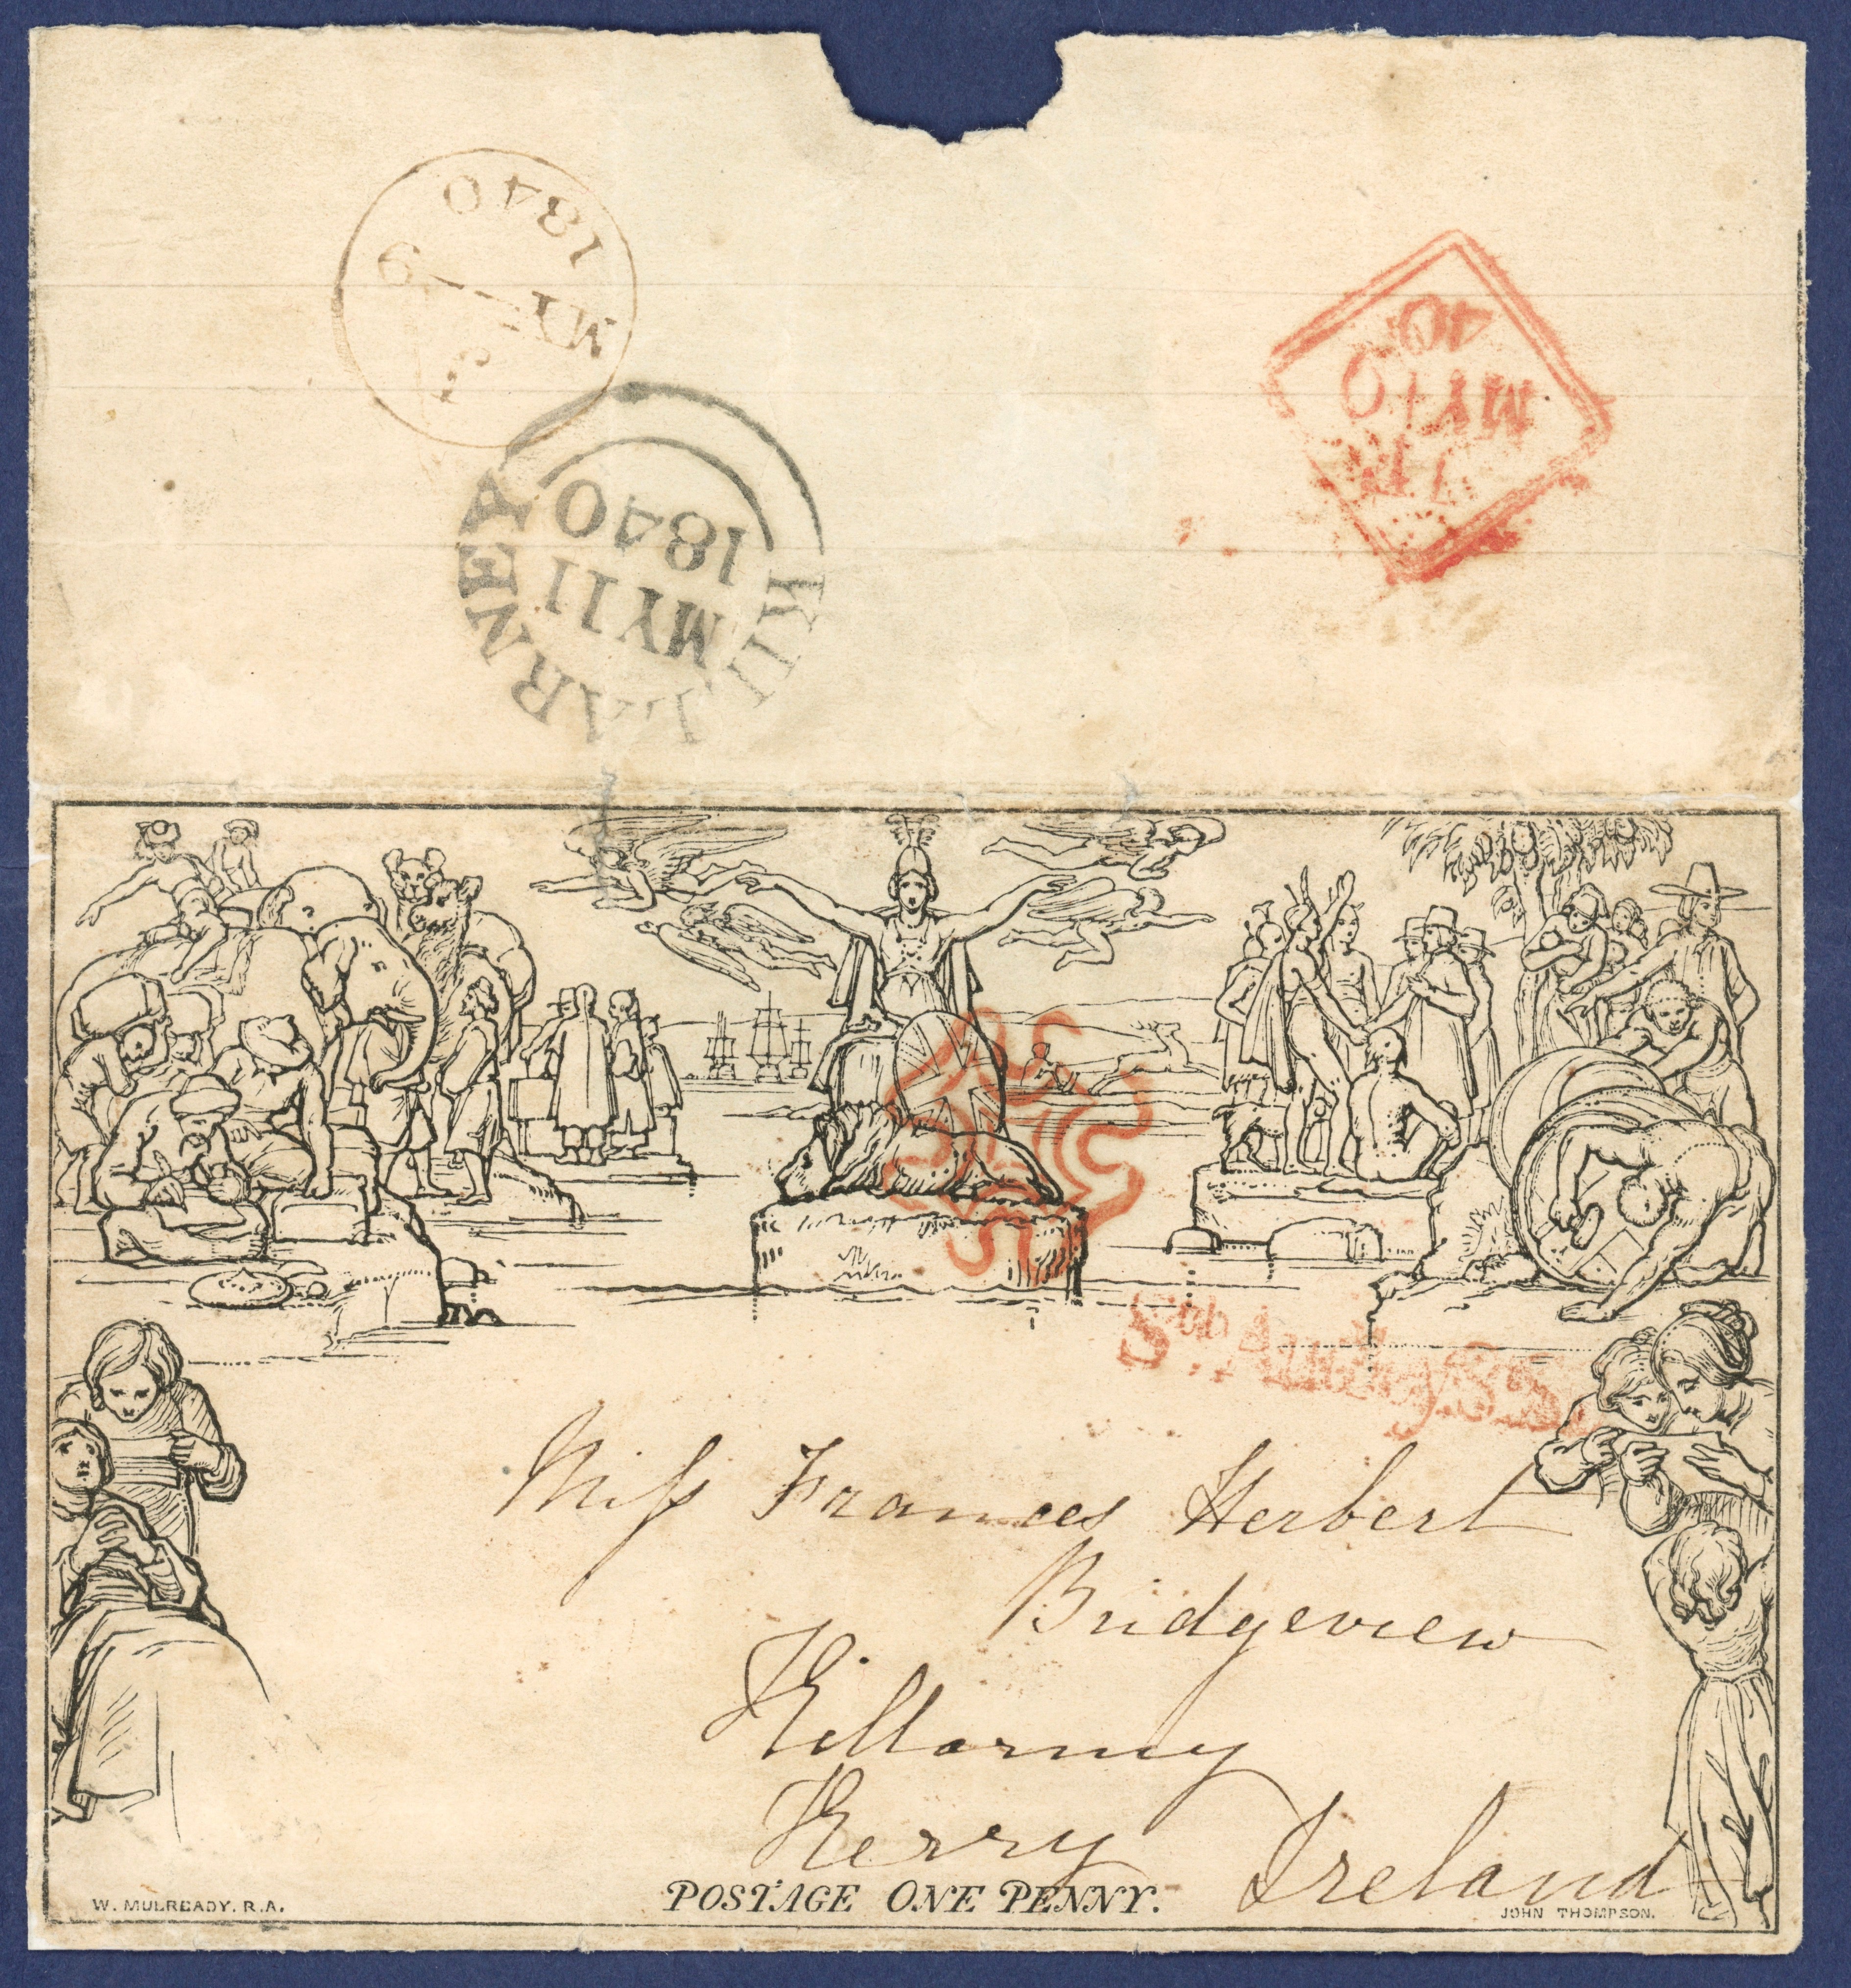 1840
MY 9
40
MY 9
KILLARNEY
MY 11
1840
Sth Audley St
Miss Frances Herbert
Bridgeview
Killarney
Kerry Ireland
POSTAGE ONE PENNY.
W. MULREADY. R.A.
JOHN THOMPSON.